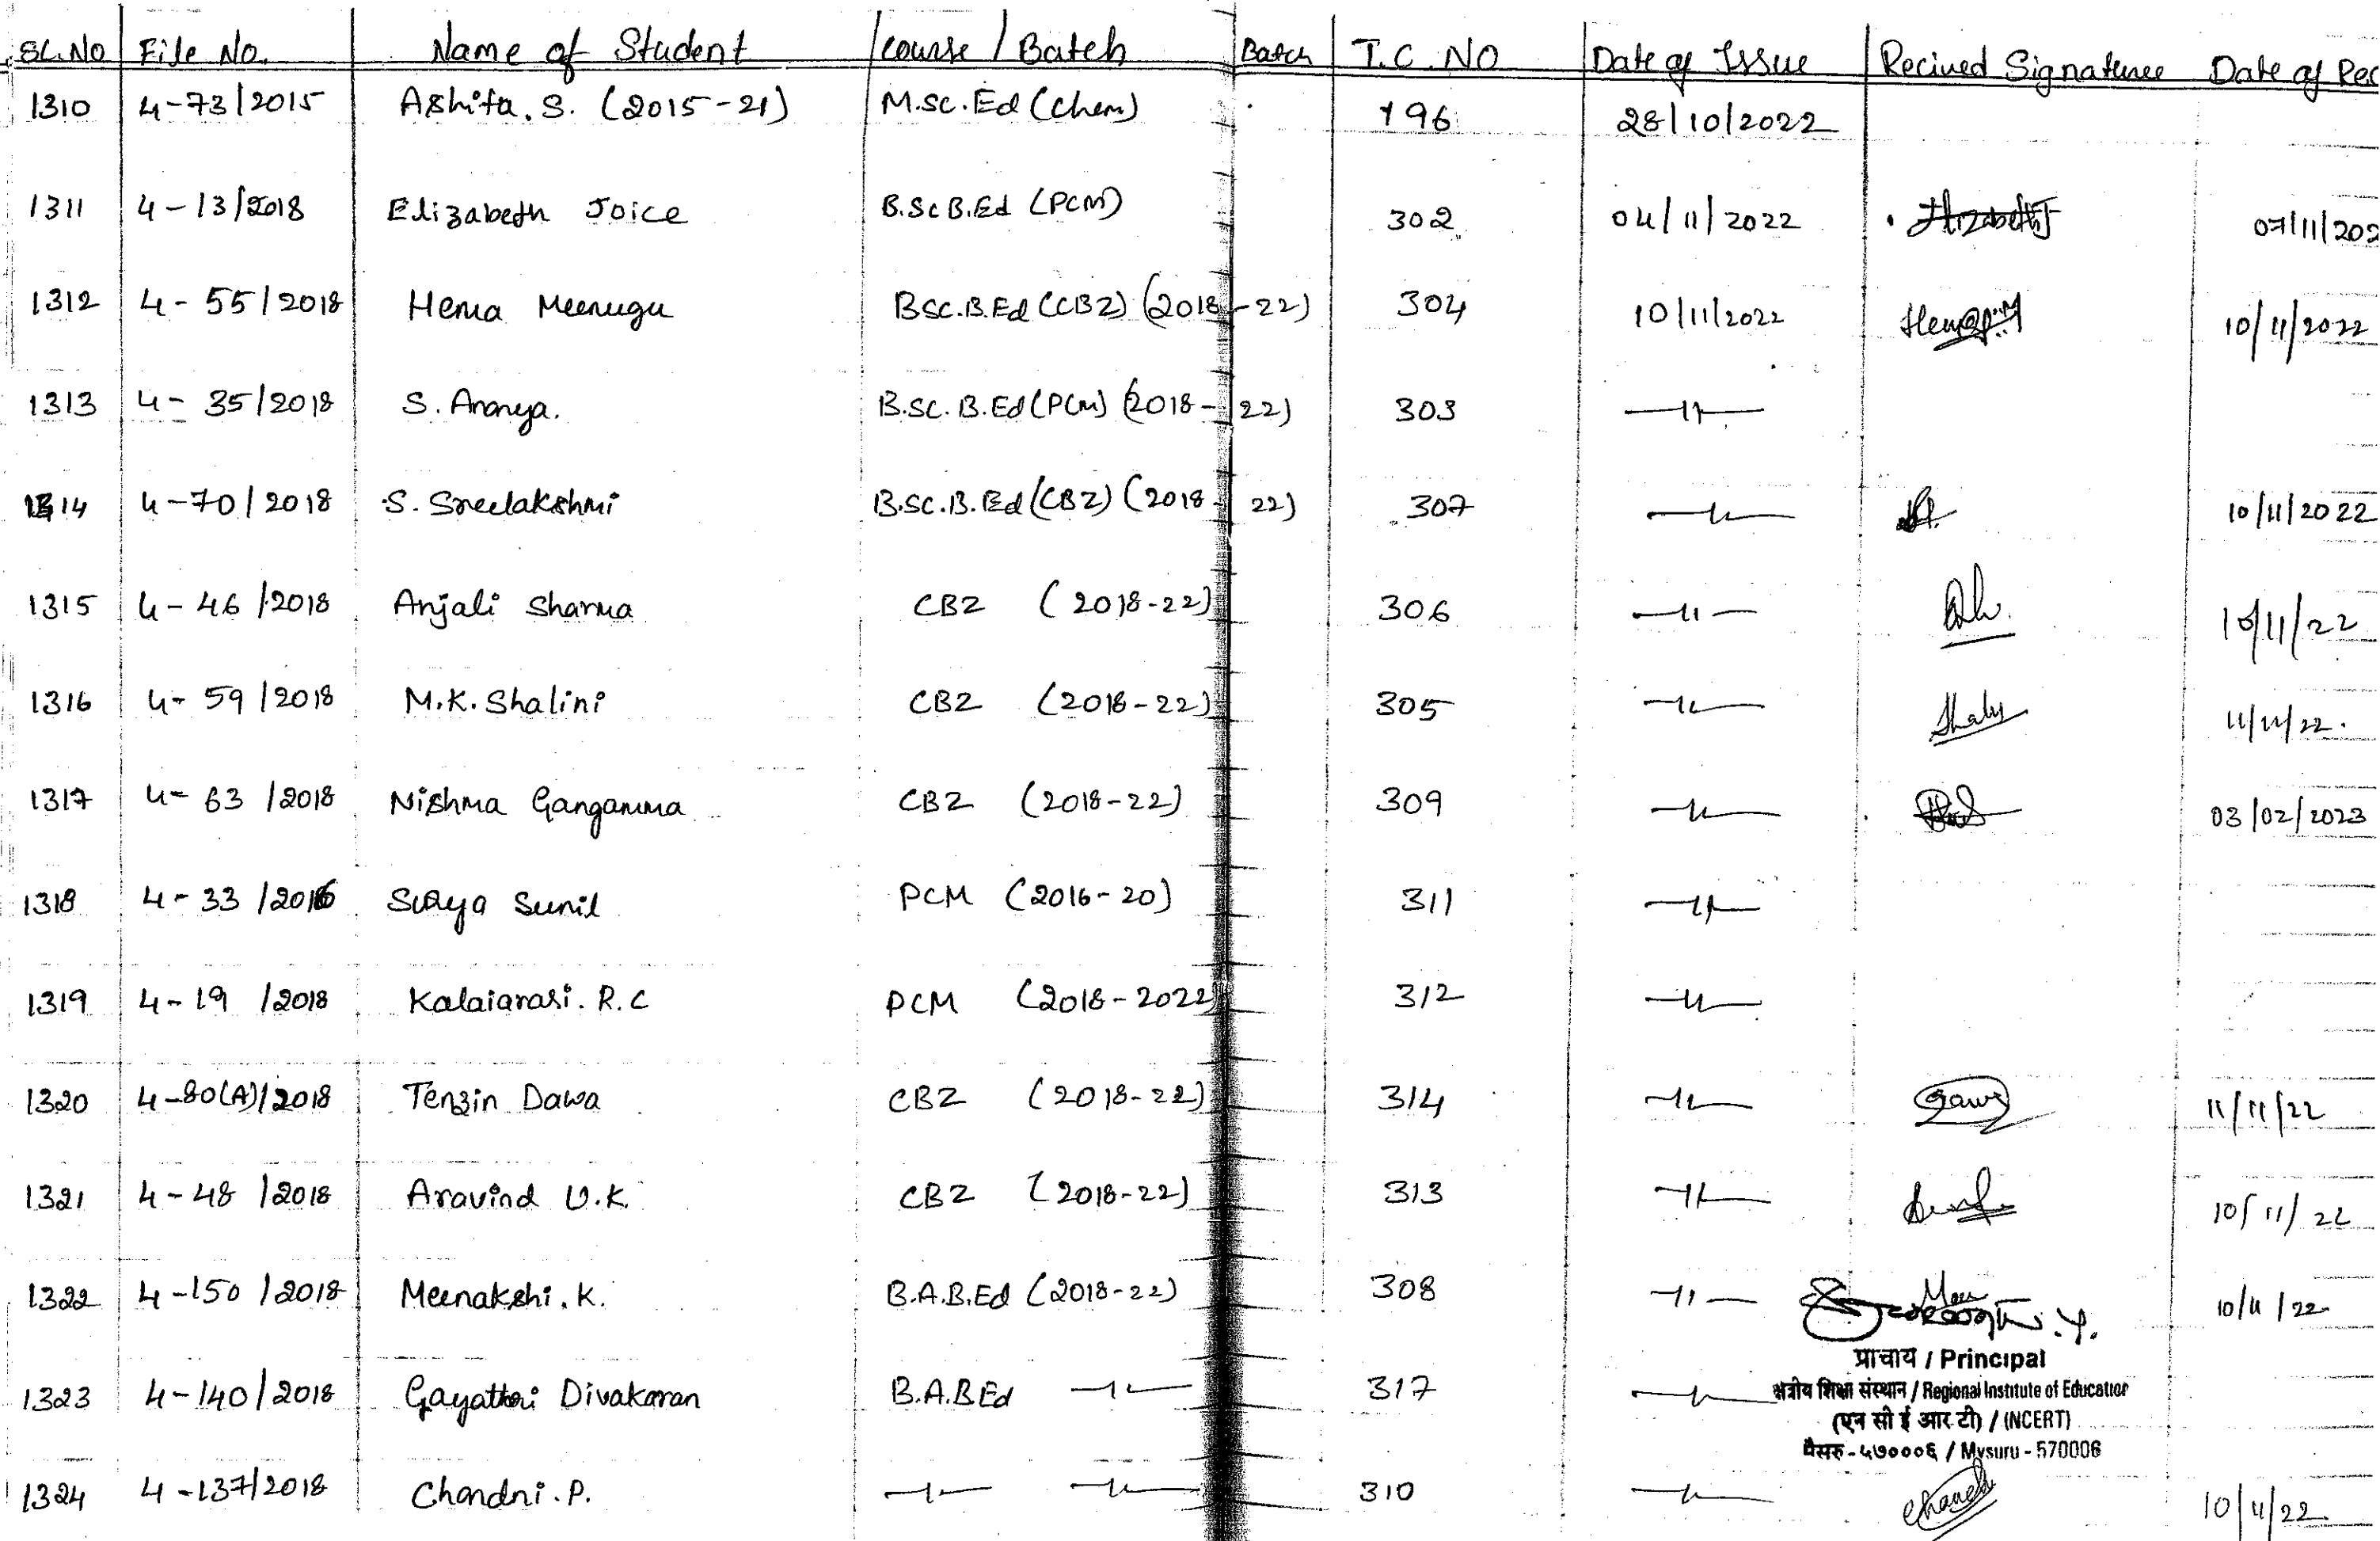 SL.No File No. Name of Student Course / Batch Batch T.C. NO Date of Issue Recived Signature Date of Rec
1310 4-73/2015 Ashita. S. (2015-21) M.Sc.Ed (Chem) 196 28/10/2022
1311 4-13/2018 Elizabeth Joice B.Sc B.Ed (PCM) 302 04/11/2022 07/11/202
1312 4-55/2018 Hema Meenugu BSC.B.Ed (CBZ) (2018-22) 304 10/11/2022 Hema.M 10/11/2022
1313 4-35/2018 S. Ananya. B.SC.B.Ed (PCM) (2018-22) 303 —11—
1314 4-70/2018 S. Sreelakshmi B.SC.B.Ed (CBZ) (2018-22) 307 —11— 10/11/2022
1315 4-46/2018 Anjali Sharma CBZ (2018-22) 306 —11— 10/11/22
1316 4-59/2018 M.K. Shalini CBZ (2018-22) 305 —11— 11/11/22.
1317 4-63/2018 Nishma Gangamma CBZ (2018-22) 309 —11— 03/02/2023
1318 4-33/2016 Surya Sunil PCM (2016-20) 311 —11—
1319 4-19/2018 Kalaiarasi. R.C PCM (2018-2022) 312 —11—
1320 4-80(A)/2018 Tenzin Dawa CBZ (2018-22) 314 —11— 11/11/22
1321 4-48/2018 Aravind U.K. CBZ (2018-22) 313 —11— 10/11/22
1322 4-150/2018 Meenakshi. K. B.A.B.Ed (2018-22) 308 —11— 10/11/22
प्राचार्य / Principal
1323 4-140/2018 Gayathri Divakaran B.A.B.Ed —11— 317 —11—
क्षेत्रीय शिक्षा संस्थान / Regional Institute of Education
(एन सी ई आर टी) / (NCERT)
मैसूरु - ५७०००६ / Mysuru - 570006
1324 4-137/2018 Chandni. P. —11— —11— 310 —11— 10/11/22